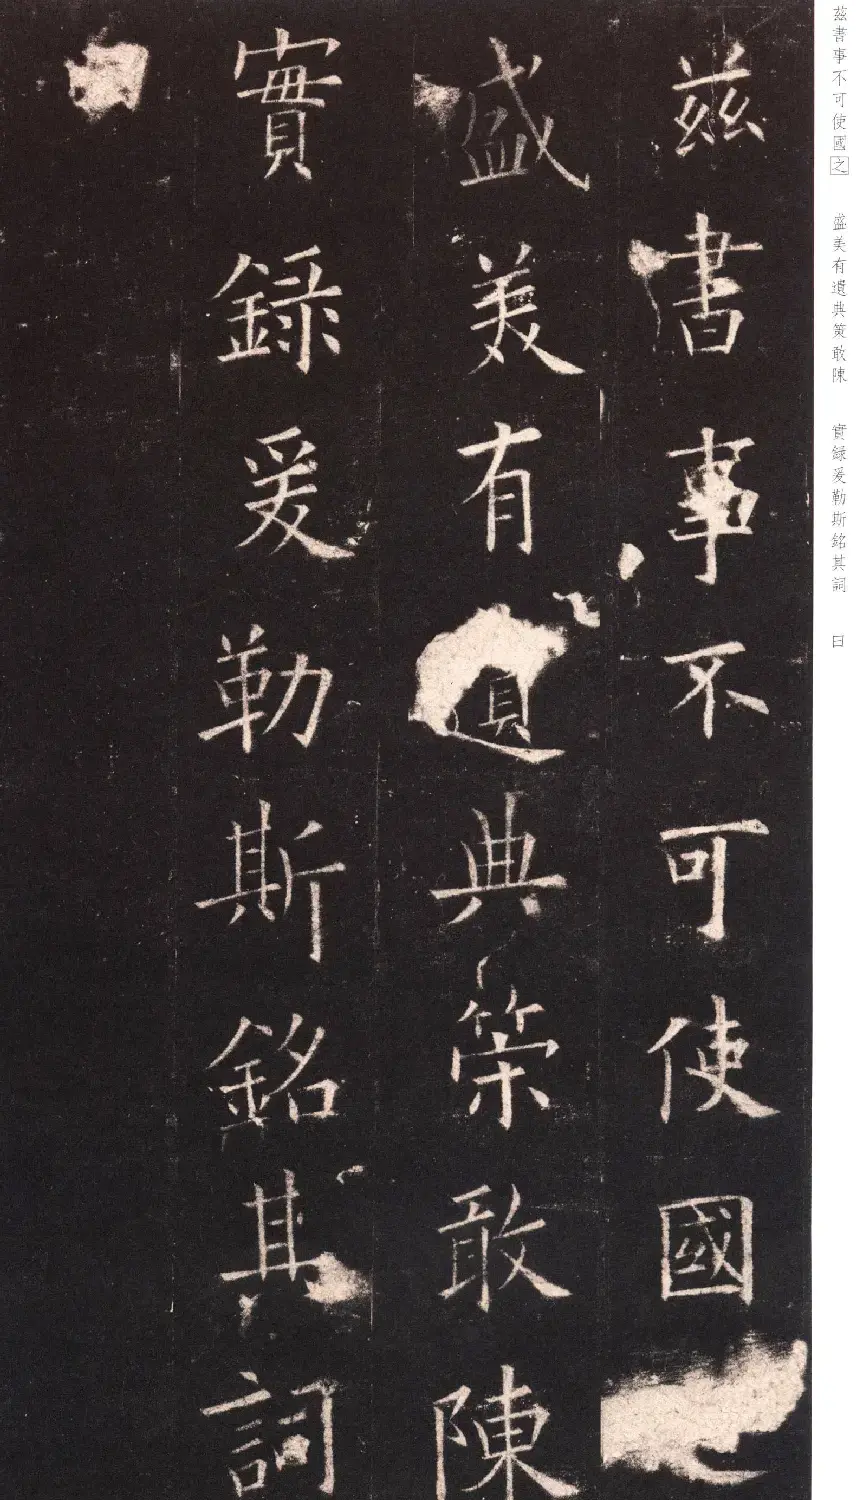 茲書事不可使國之 盛美有遺典筴敢陳 實録爰勒斯銘其詞 曰
茲書事不可使國
盛美有遺典策敢陳
實錄爰勒斯銘其詞